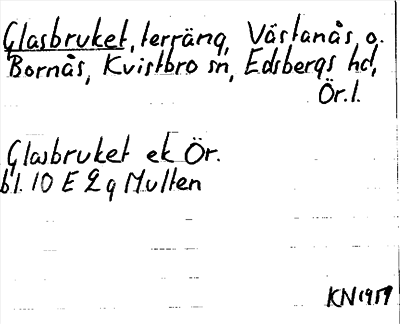 Glasbruket, terräng, Västanås o.
Bornås, Kvistbro sn, Edsbergs hd,
Ör.l.
Glasbruket ek Ör.
bl. 10 E 2 g Multen
KN 1959